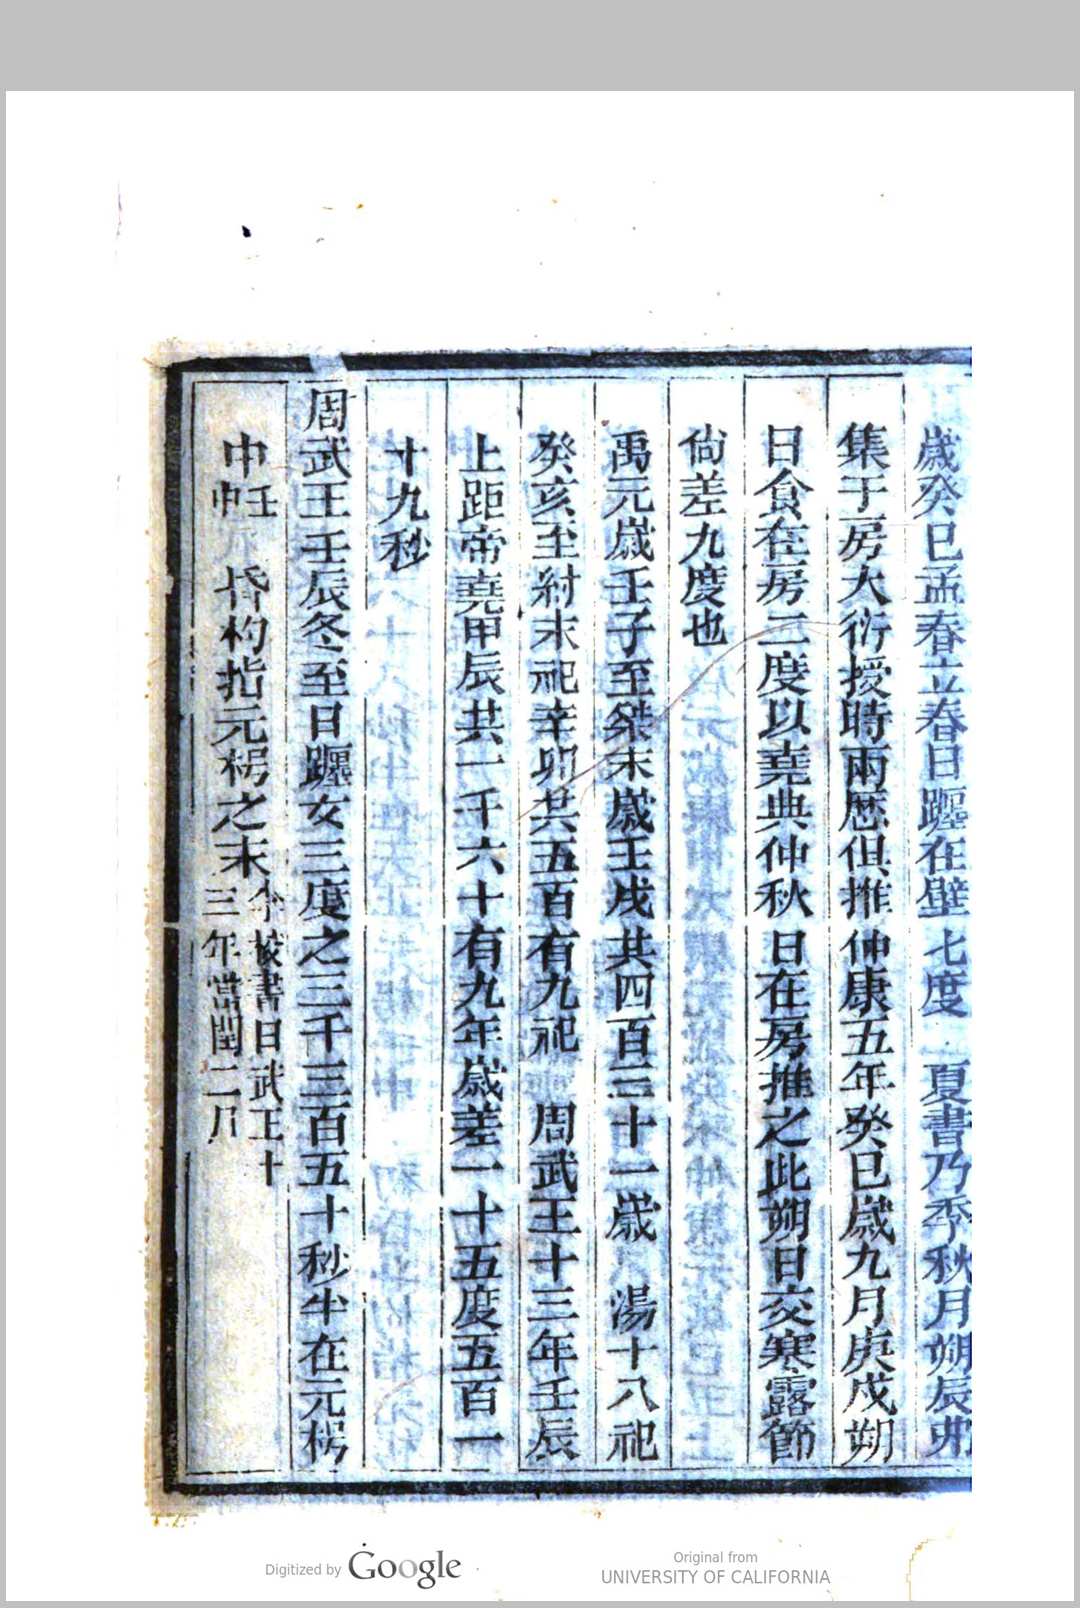 歲癸巳孟春立春日躔在壁七度　夏書乃季秋月朔辰弗
集于房大衍授時兩歷俱推仲康五年癸巳歲九月庚戌朔
日食在房二度以堯典仲秋日在房推之此朔日交寒露節
尙差九度也
禹元歲壬子至桀末歲壬戌共四百三十一歲　湯十八祀
癸亥至紂末祀辛卯共五百有九祀　周武王十三年壬辰
上距帝堯甲辰共一千六十有九年歲差一十五度五百一
十九秒
周武王壬辰冬至日躔女三度之三千三百五十秒牛在元枵
中壬中昏杓指元枵之末今按書曰武王十
三年當閏二月
Digitized by Google
Original from
UNIVERSITY OF CALIFORNIA